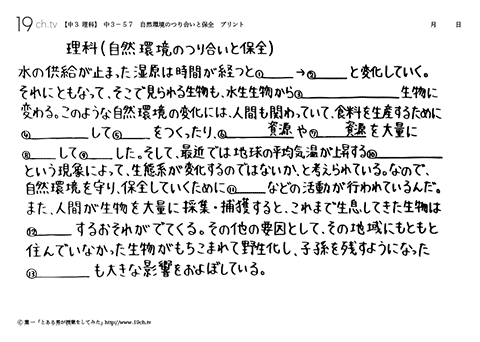 19ch.tv 【中3 理科】 中3-57 自然環境のつり合いと保全 プリント 月 日
理科(自然環境のつり合いと保全)
水の供給が止まった湿原は時間が経つと①____→②____と変化していく。
それにともなって、そこで見られる生物も、水生生物から③____________生物に
変わる。このような自然環境の変化には、人間も関わっていて、食料を生産するために
④________して⑤____をつくったり、⑥______資源や⑦____資源を大量に
⑧____して⑨____した。そして、最近では地球の平均気温が上昇する⑩________
という現象によって、生態系が変化するのではないか、と考えられている。なので、
自然環境を守り、保全していくために⑪____などの活動が行われているんだ。
また、人間が生物を大量に採集・捕獲すると、これまで生息してきた生物は
⑫____するおそれがでてくる。その他の要因として、その地域にもともと
住んでいなかった生物がもちこまれて野生化し、子孫を残すようになった
⑬______も大きな影響をおよぼしている。
© 葉一「とある男が授業をしてみた」http://www.19ch.tv